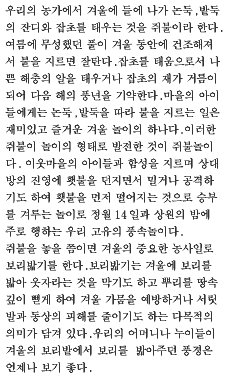 우리의 농가에서 겨울에 들에 나가 논둑,밭둑
의 잔디와 잡초를 태우는 것을 쥐불이라 한다.
여름에 무성했던 풀이 겨울 동안에 건조해져
서 불을 지르면 잘탄다.잡초를 태움으로서 나
쁜 해충의 알을 태우거나 잡초의 재가 거름이
되어 다음 해의 풍년을 기약한다.마을의 아이
들에게는 논둑,밭둑을 따라 불을 지르는 일은
재미있고 즐거운 겨울 놀이의 하나다.이러한
쥐불이 놀이의 형태로 발전한 것이 쥐불놀이
다. 이웃마을의 아이들과 함성을 지르며 상대
방의 진영에 횃불을 던지면서 밀거나 공격하
기도 하여 횃불을 먼저 떨어지는 것으로 승부
를 겨루는 놀이로 정월 14일과 상원의 밤에
주로 행하는 우리 고유의 풍속놀이다.
쥐불을 놓을 쯤이면 겨울의 중요한 농사일로
보리밟기를 한다.보리밟기는 겨울에 보리를
밟아 웃자라는 것을 막기도 하고 뿌리를 땅속
깊이 뻗게 하여 겨울 가뭄을 예방하거나 서릿
발과 동상의 피해를 줄이기도 하는 다목적의
의미가 담겨 있다.우리의 어머니나 누이들이
겨울의 보리밭에서 보리를 밟아주던 풍경은
언제나 보기 좋다.